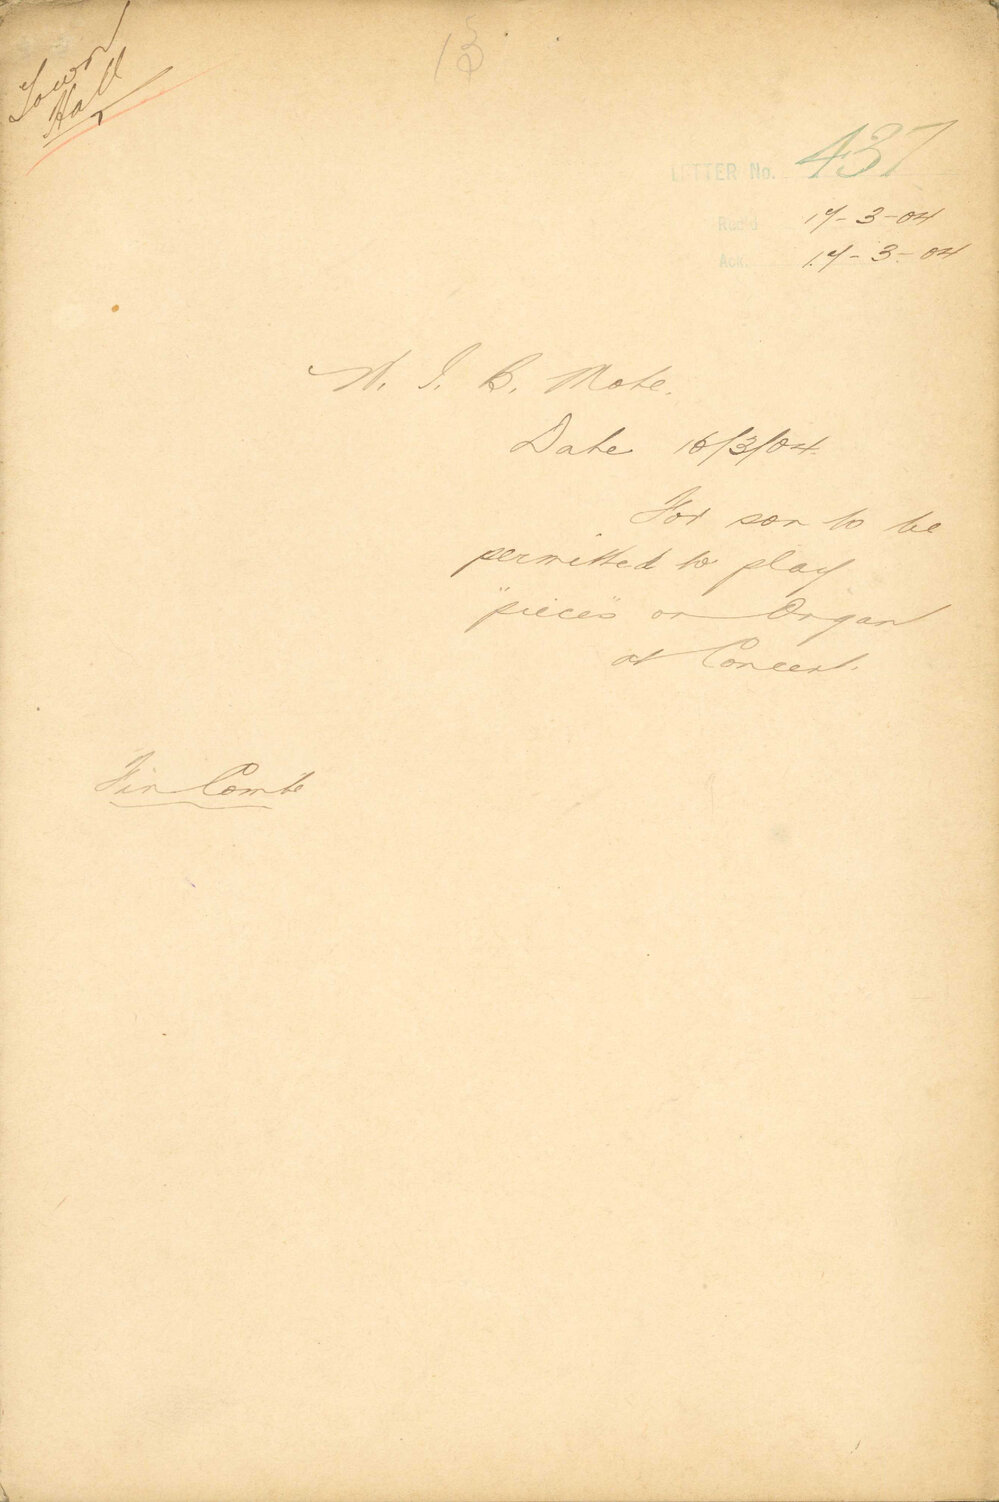 Town
Hall
13
LETTER No. 437
Rec'd 17-3-04
Ack. 17-3-04
W. J. B. Mote.
Date 16/3/04.
For son to be
permitted to play
"pieces" on Organ
at Concert.
Fin Comte